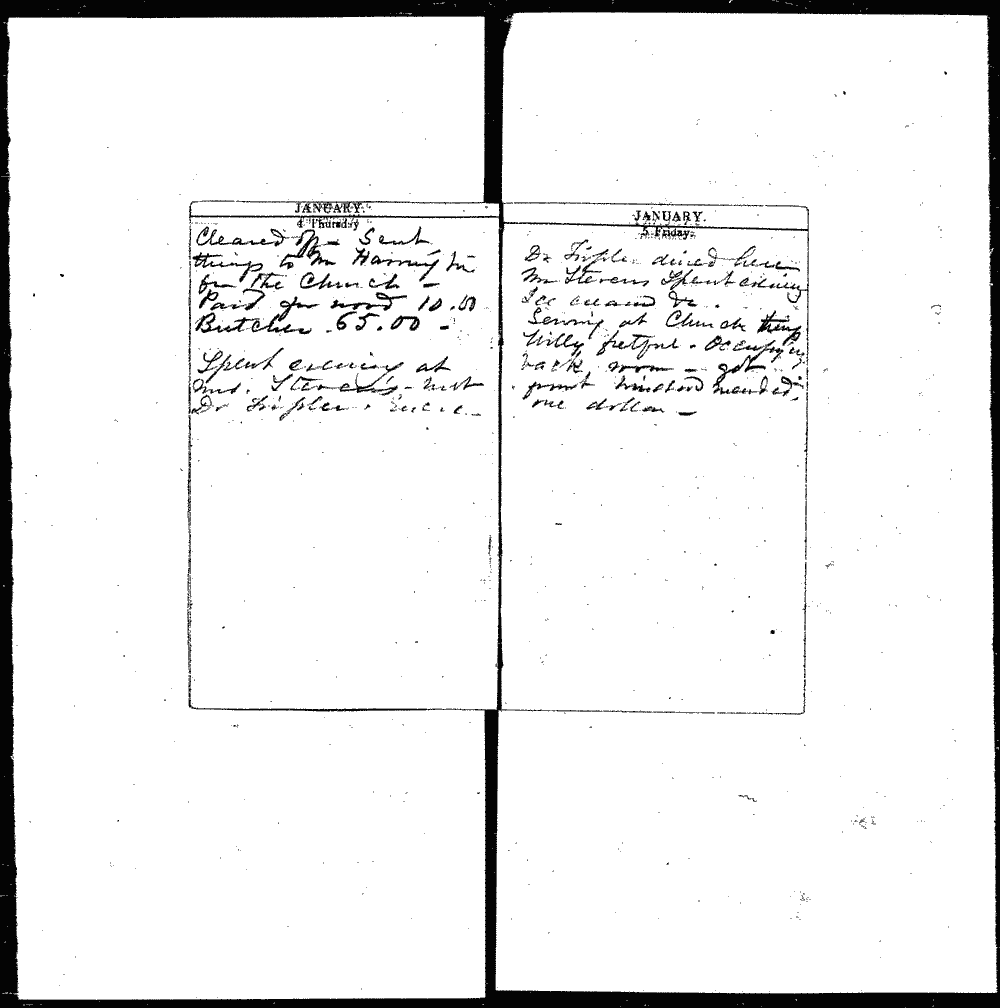 JANUARY.
4 Thursday
Cleared up - Sent
things to Mr Harrington
for the Church -
Paid for wood 10.50
Butcher 65.00 -
Spent evening at
Mrs. Stevens - met
Dr Tripler.
JANUARY.
5 Friday.
Dr Tripler dined here
Mr Stevens Spent evening
Ice cream &c.
Sewing at Church things
Willy fretful. Occupying
back room - got
front window mended.
one dollar -